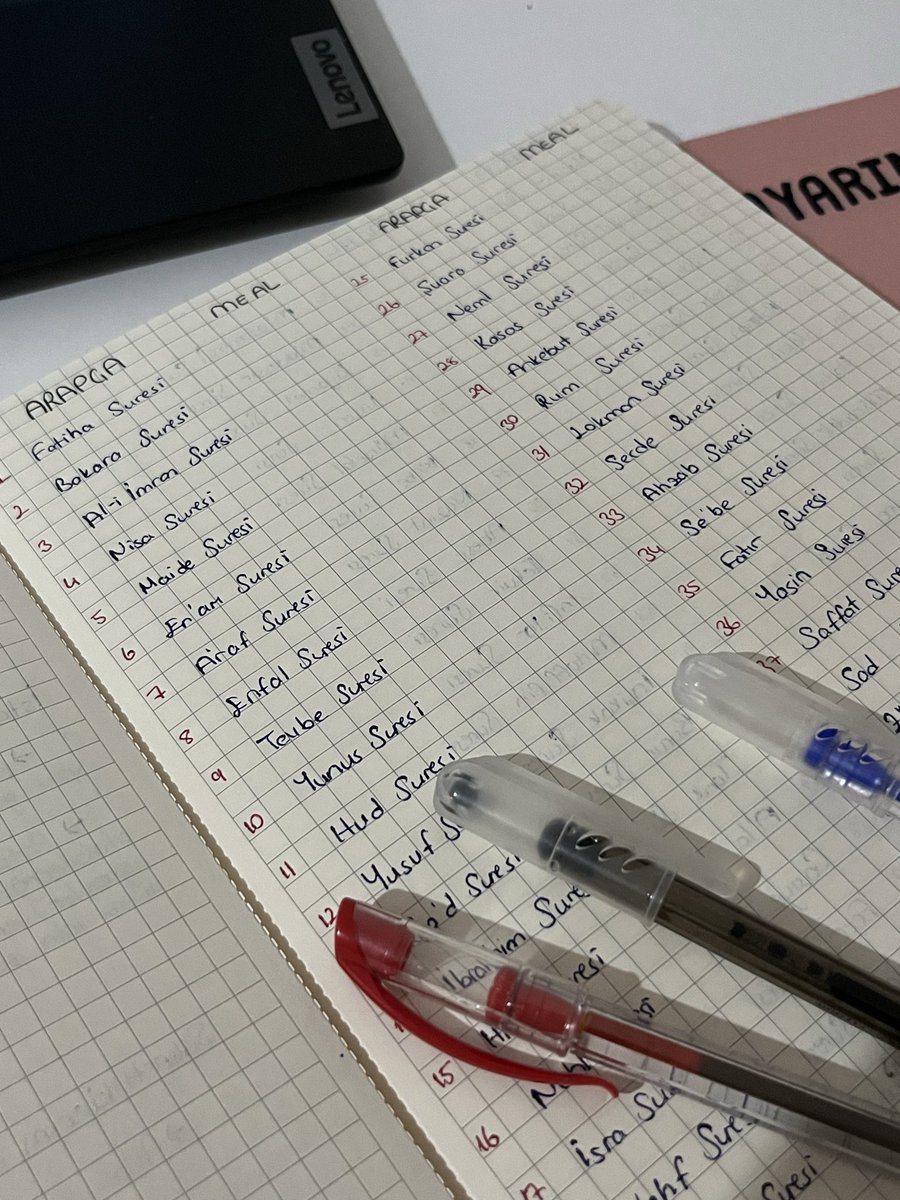 Lenovo
AYARIN
ARAPÇA MEAL
1 Fatiha Suresi
2 Bakara Suresi
3 Al-i İmran Suresi
4 Nisa Suresi
5 Maide Suresi
6 En'am Suresi
7 A'raf Suresi
8 Enfal Suresi
9 Tevbe Suresi
10 Yunus Suresi
11 Hud Suresi
12 Yusuf
Suresi
Suresi
15
16 İsra
17 Suresi
ARAPÇA MEAL
25 Furkan Suresi
26 Şuara Suresi
27 Neml Suresi
28 Kasas Suresi
29 Ankebut Suresi
30 Rum Suresi
31 Lokman Suresi
32 Secde Suresi
33 Ahzab Suresi
34 Se'be Suresi
35 Fatır Suresi
36 Yasin Suresi
37 Saffat
Sad